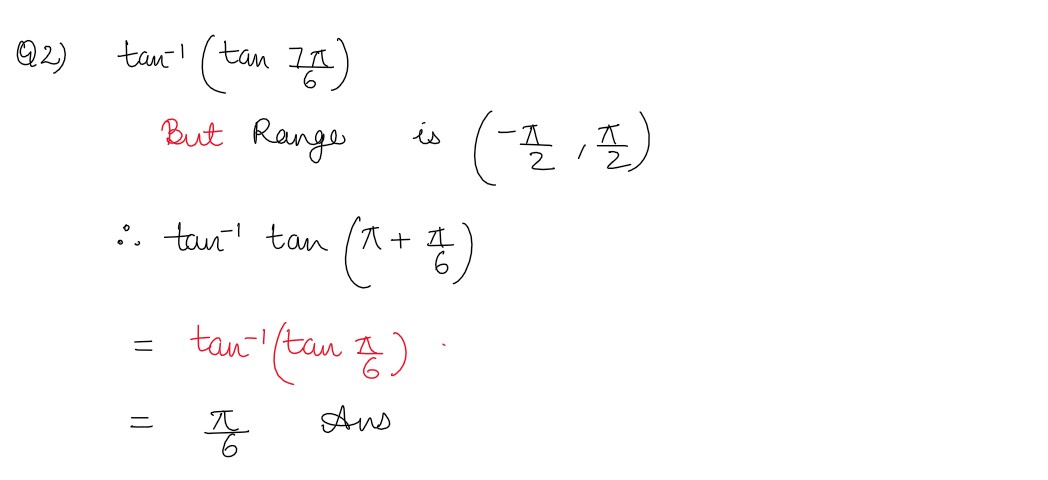 Q2) tan⁻¹(tan 7π/6)
But Range is (-π/2, π/2)
∴ tan⁻¹ tan (π + π/6)
= tan⁻¹(tan π/6)
= π/6 Ans